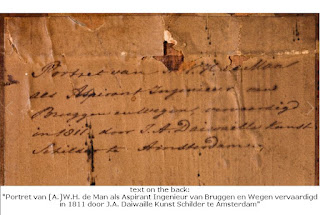 Portret van A. W. H. de Man
als Aspirant Ingenieur van
Bruggen en Wegen vervaardigd
in 1811 door J. A. Daiwaille Kunst
Schilder te Amsterdam
text on the back:
"Portret van [A.]W.H. de Man als Aspirant Ingenieur van Bruggen en Wegen vervaardigd
in 1811 door J.A. Daiwaille Kunst Schilder te Amsterdam"